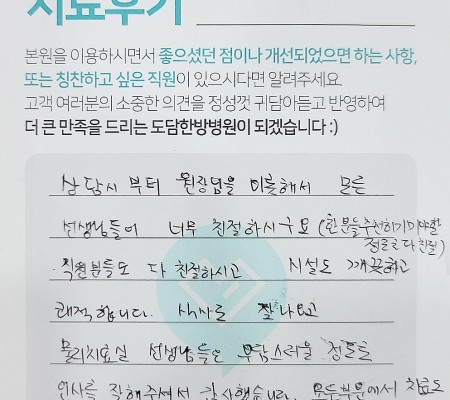 치료후기
본원을 이용하시면서 좋으셨던 점이나 개선되었으면 하는 사항,
또는 칭찬하고 싶은 직원이 있으시다면 알려주세요.
고객 여러분의 소중한 의견을 정성껏 귀담아듣고 반영하여
더 큰 만족을 드리는 도담한방병원이 되겠습니다 :)
상담시 부터 원장님을 비롯해서 모든
선생님들이 너무 친절하시구요 (한분들 추천하기 미안할
정도로 다 친절)
직원분들도 다 친절하시고 시설도 깨끗하고
쾌적합니다. 식사도 잘 나오고
물리치료실 선생님들은 부담스러울 정도로
인사를 잘해주셔서 감사했습니다. 모든부분에서 치료도